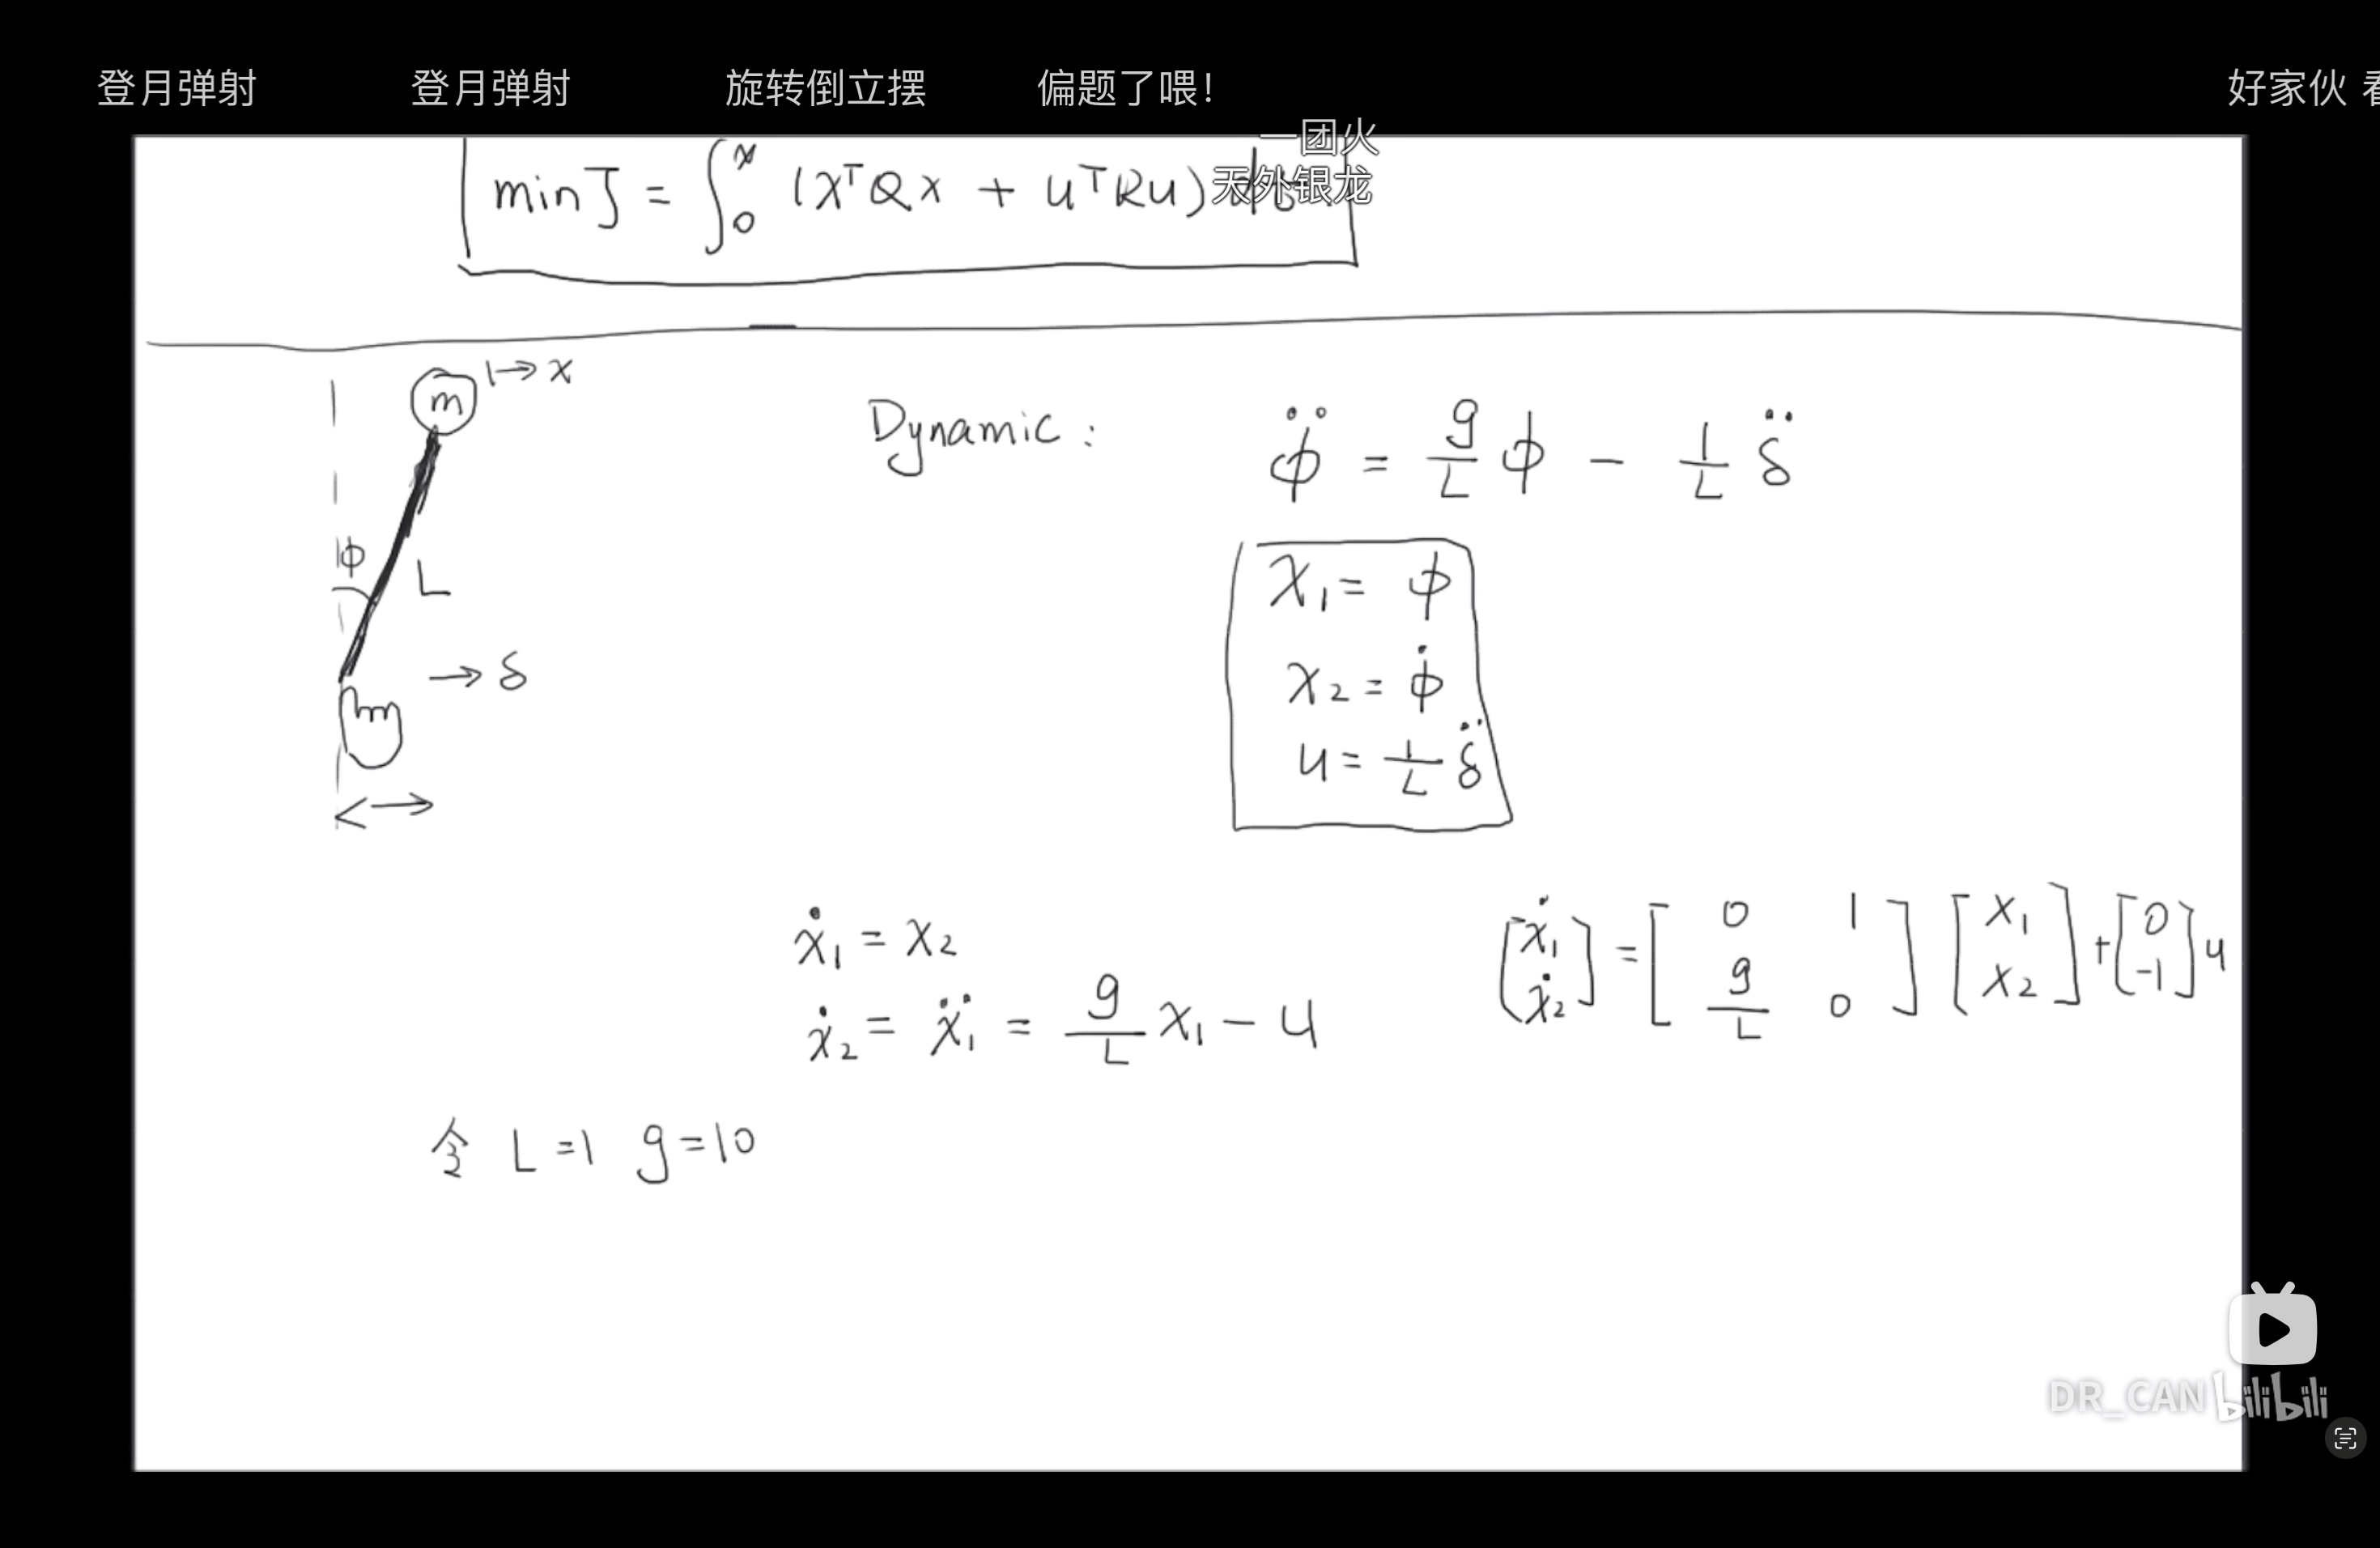 登月弹射 登月弹射 旋转倒立摆 偏题了喂！ 好家伙
一团火
天外银龙
min J = ∫₀^∞ (xᵀQx + uᵀRu) dt
m → x
Dynamic: φ̈ = g/L φ − 1/L δ̈
φ
L
X₁ = φ
→ δ
x₂ = φ̇
u = 1/L δ̈
ẋ₁ = x₂
ẋ₂ = ẍ₁ = g/L x₁ − u
[ẋ₁; ẋ₂] = [0 1; g/L 0] [x₁; x₂] + [0; -1] u
令 L=1 g=10
DR_CAN bilibili